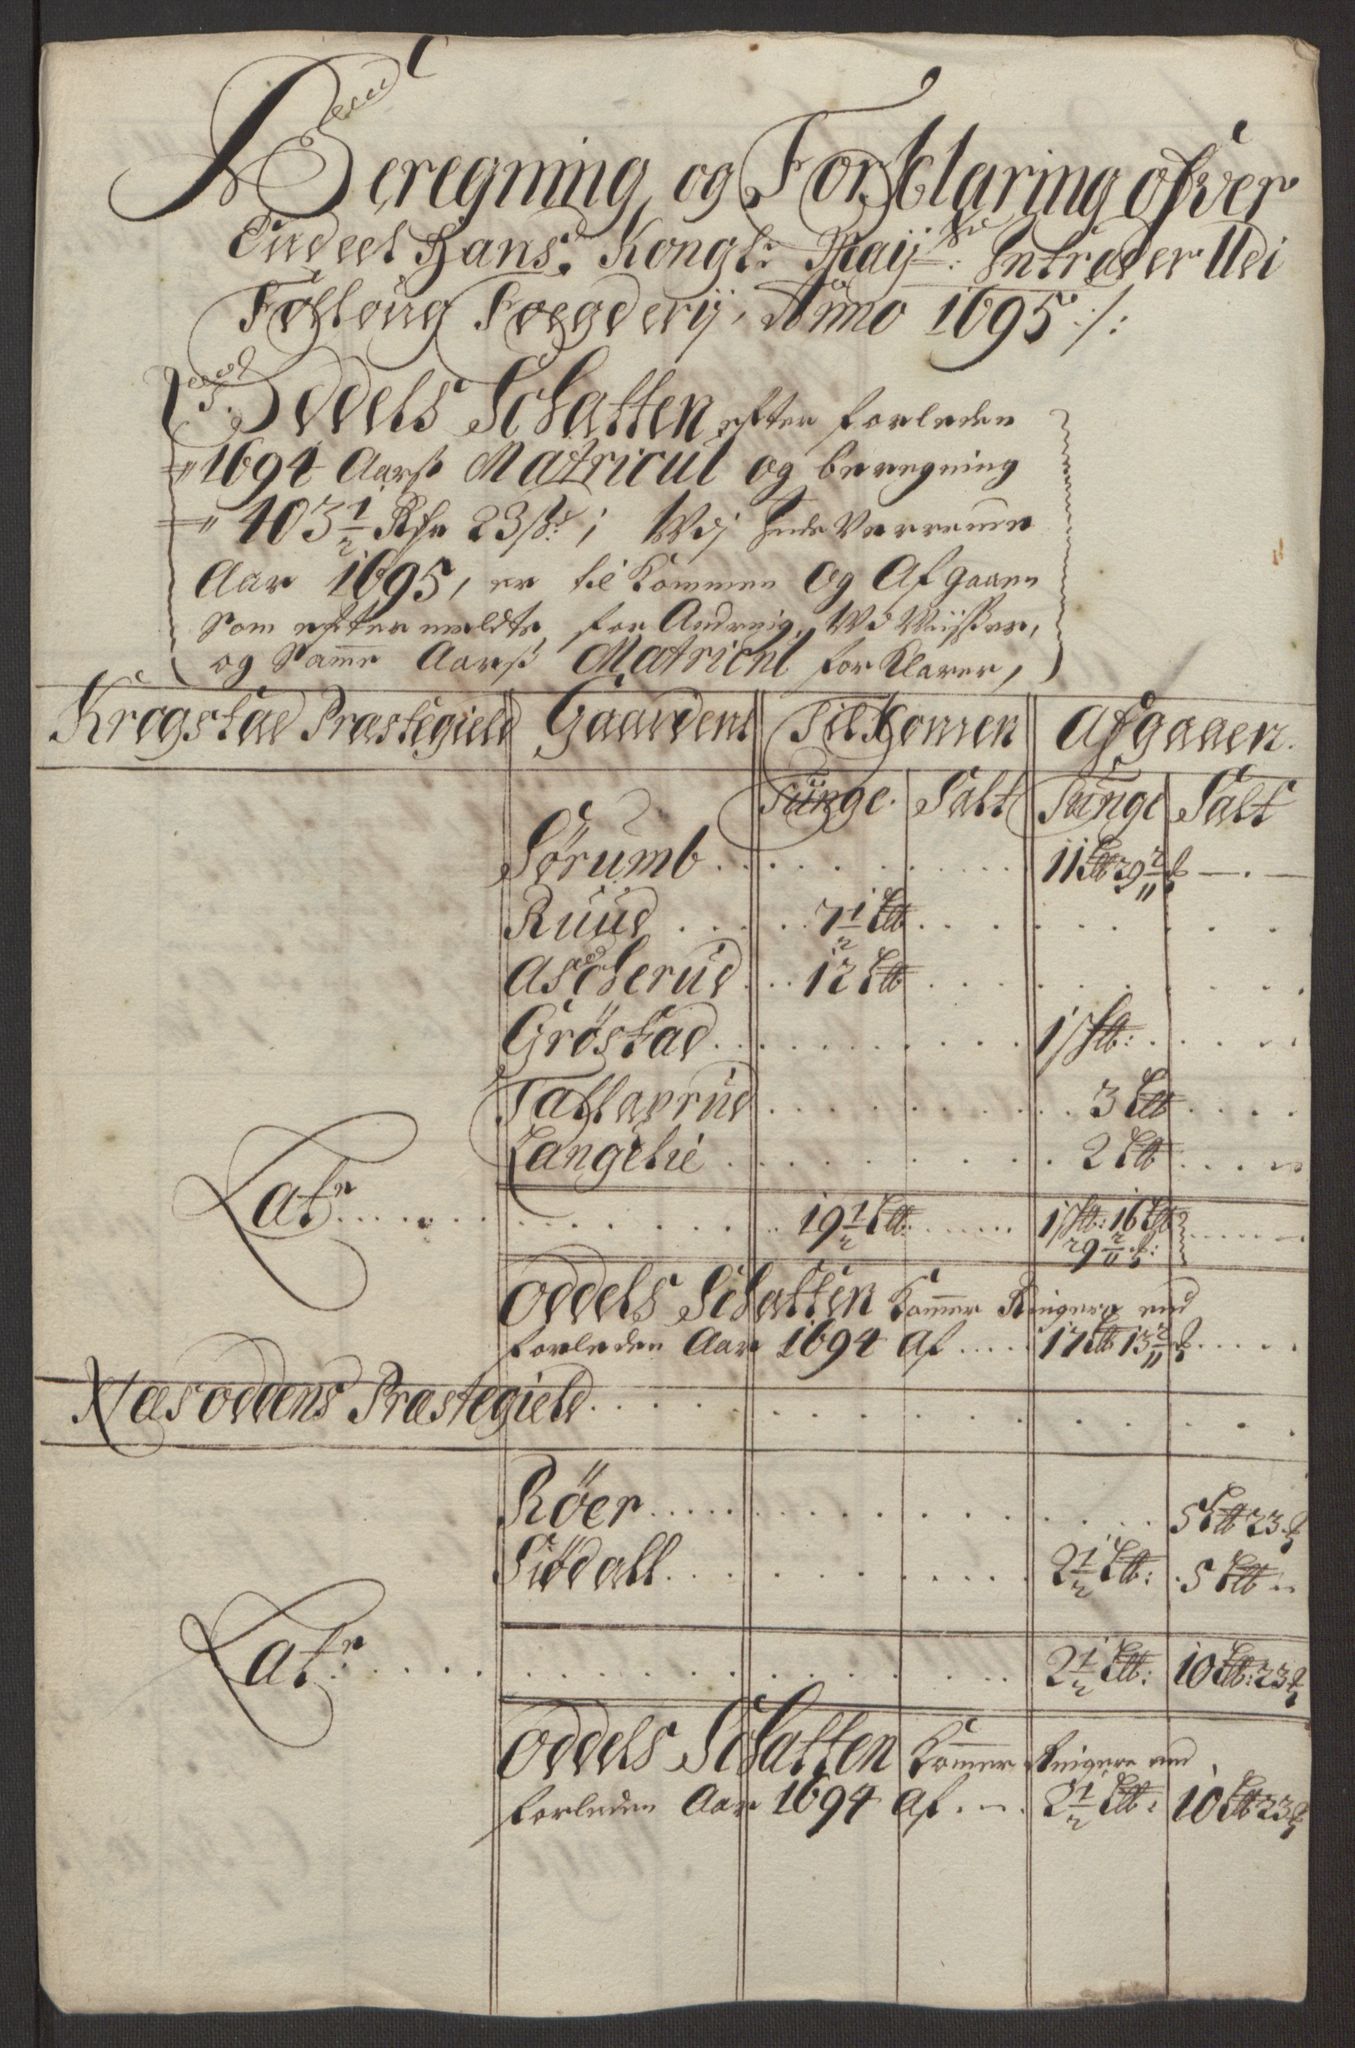 Beregning og Forklaring ofver
Endeel Hans. Kongl: Maijts: Intrader Udi
Folloug Foegderij, Anno 1695 ./:
Oddels Schatten efter forleden
1694 Aars Matricul og beregning
403 1/2 Rdr 23 s:; Udj
Aar 1695, er til Kommen og Afgaaen
Som efter meldte, for Andreig, Ud Viisser,
og Samme Aars Matricul forklarer,
Krogstad Præstegield Gaardens Til Komen Afgaaen.
Tunge. Salt Tunge Salt
Sørumb . . . 11 Ltb 29 2/11 f
Ruud . . . 7 1/2 Ltb
Ascherud . . . 12 Ltb
Grøstad . . . 1 Stb:
Tallaxrud . . . 3 Ltb
Langelie . . . 2 Ltb
Latr . . . 19 1/2 Ltb: . . . 1 Stb: 16 Ltb
29 2/11 f:
Oddels Schatten Kommer Ringere end
forleden Aar 1694 af . . . 17 Ltb 13 2/11 f
Næsoddens Præstegield . . .
Røer . . . 5 Ltb 23 f
Siødall . . . 2 1/2 Ltb: . 5 Ltb
Latr . . . 2 1/2 Ltb: 10 Ltb: 23 f
Oddels Schatten Kommer Ringere end
forleden Aar 1694 af . . . 2 1/2 Ltb: 10 Ltb 23 f